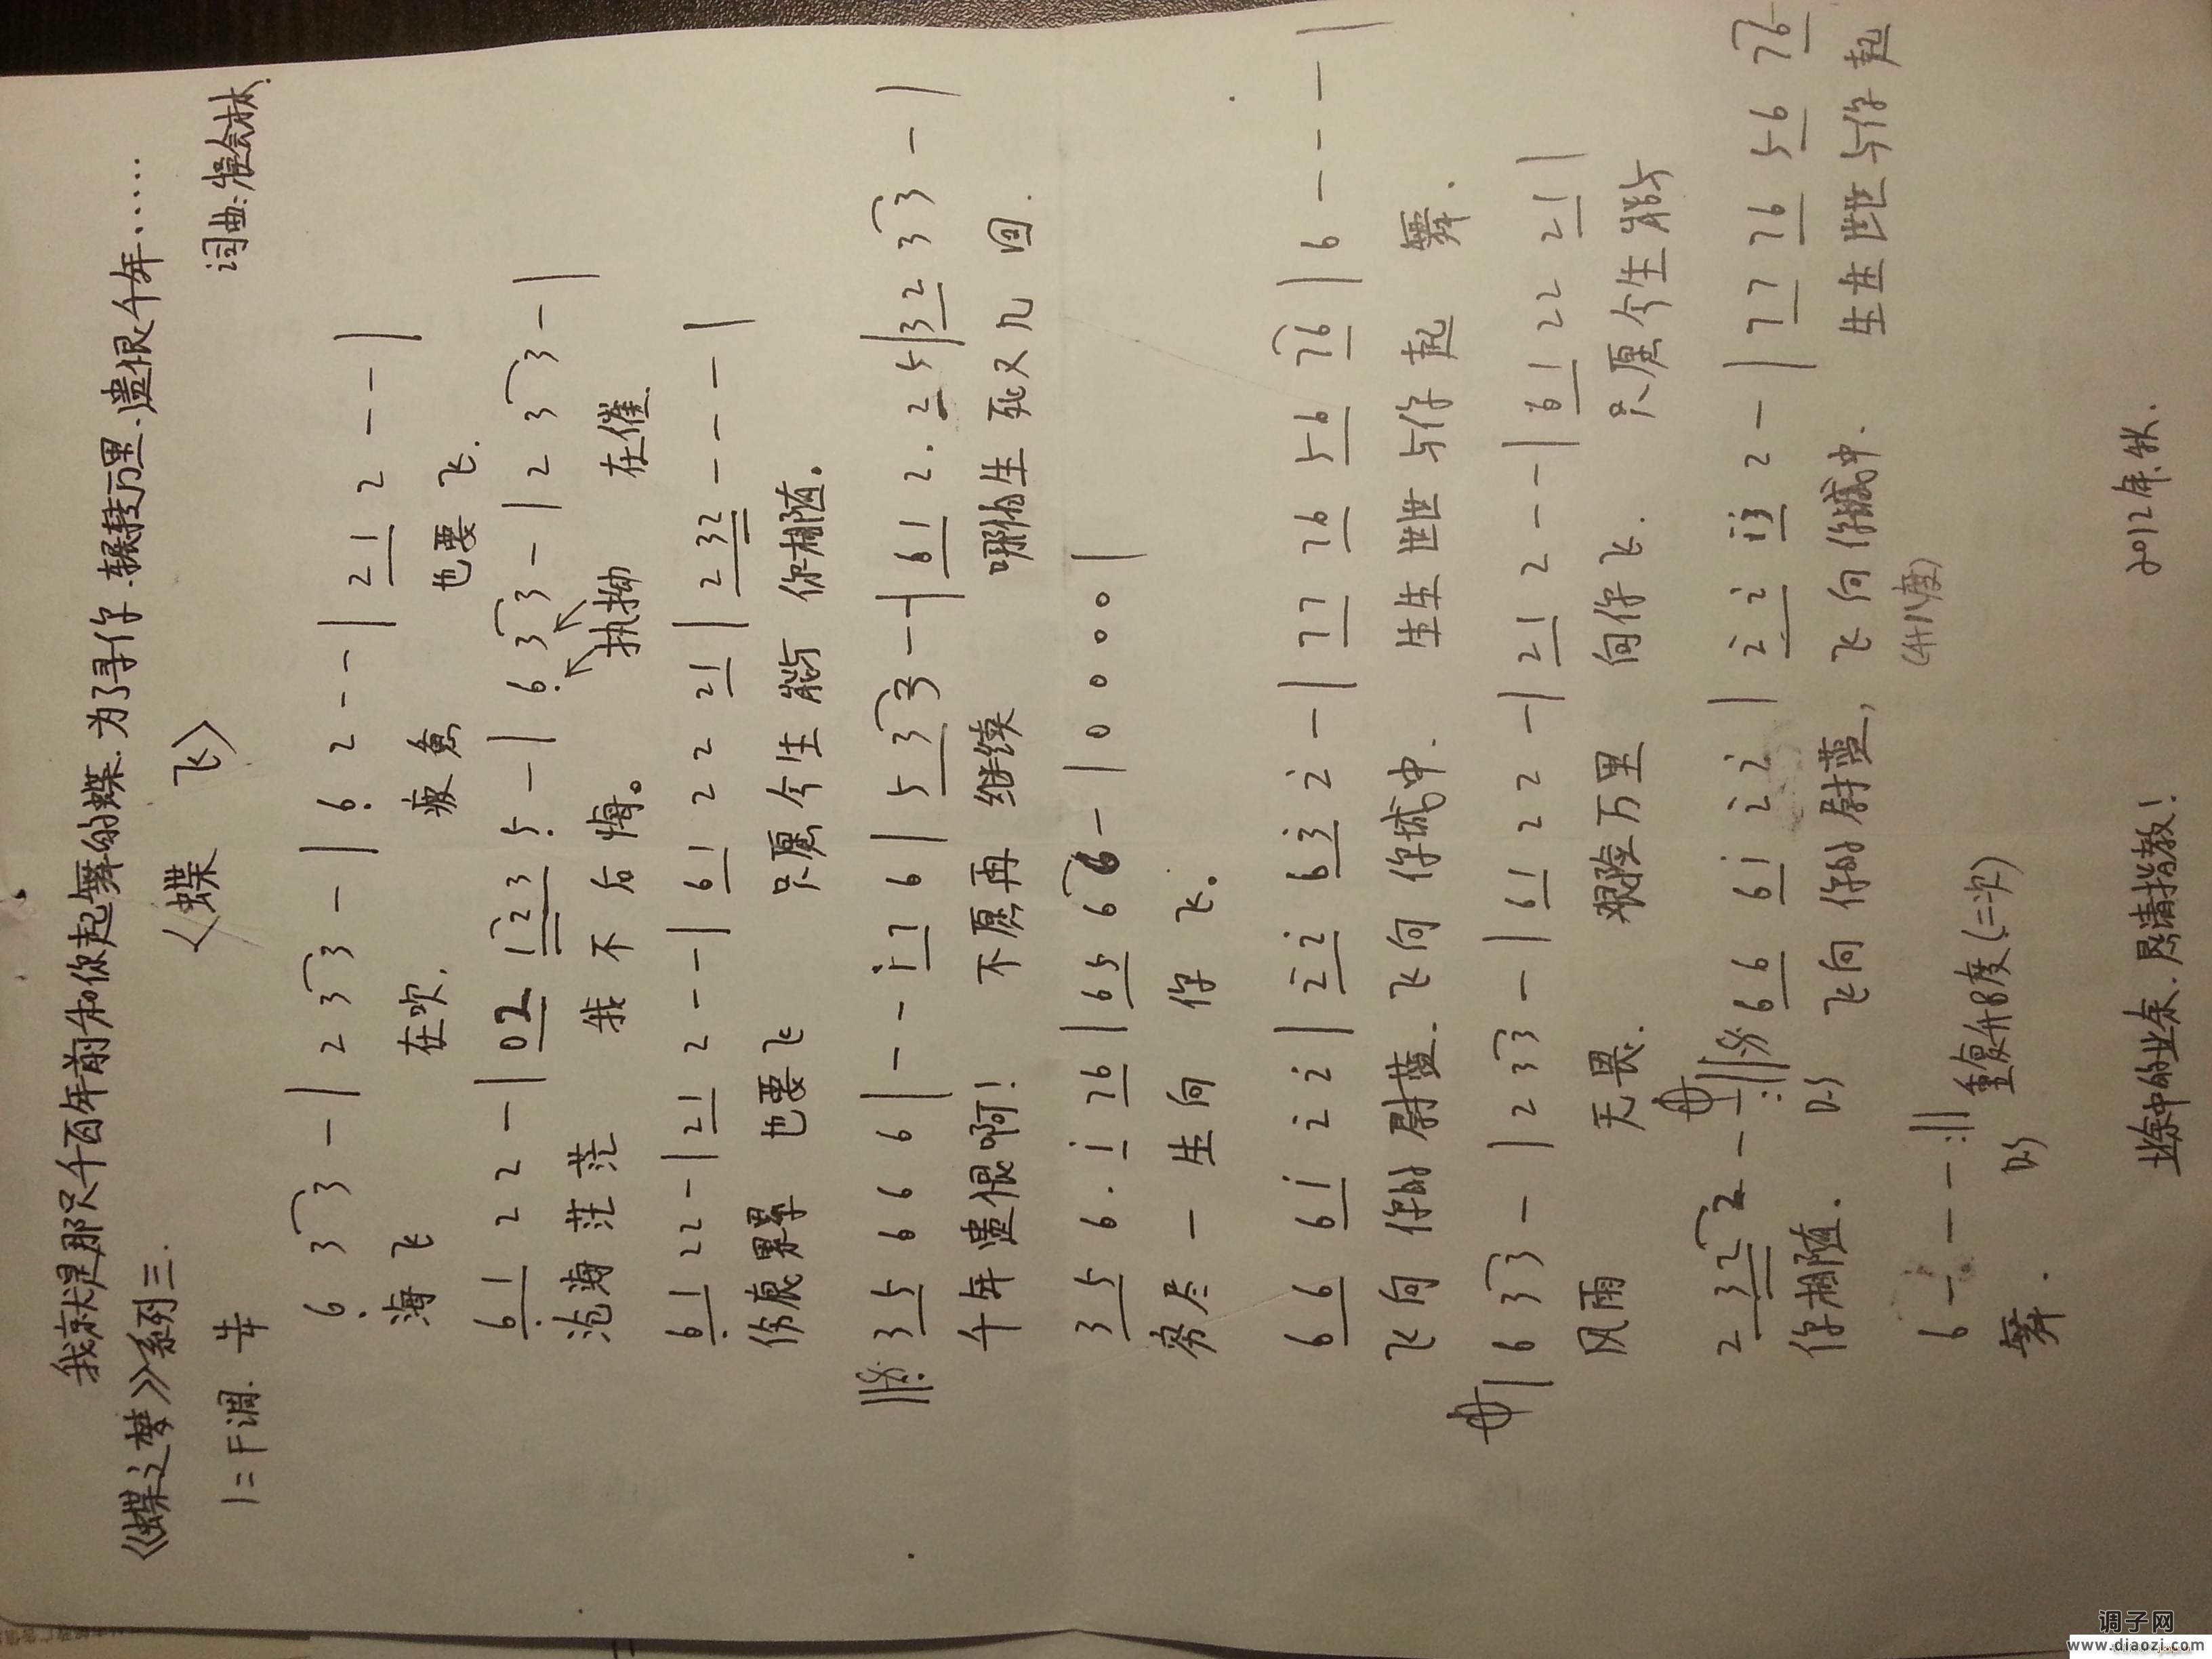 我就是那只千百年前和你起舞的蝶.为了寻你.辗转万里.遗恨千年……
《蝶之梦》系列三.
〈蝶 飞〉
1=F调. 4/4
词曲:
6̣ 3 3 - | 2 3 3 - | 6̣ 2 - - | 2 1 2 - - |
海飞 在吹. 疲惫 也要 飞.
6̣ 1 2 2 - | 0 2 1 2 3 5̣ - | 6̣ 3 3 - | 2 3 3 - |
沧海 茫 茫 我 不 后 悔。 执拗 在催.
6̣ 1 2 2 - | 2 1 2 - - | 6̣ 1 2 2 2 1 | 2 3 2 - - - |
伤痕累累 也要飞 只愿 今生 能与 你相随。
3 5 6 6 6 | - - i 7 6 | 5 3 3 - - | 6 1 2. 2 5 | 3 2 3 3 - |
千年 遗恨啊! 不愿再 继续 哪怕生 死又几 回.
3 5 6. i 7 6 | 6 5 6 6 - | 0 0 0 0 |
穷尽 一 生向 你 飞。
6 6 6 i 2̇ 2̇ | 2̇ 2̇ 6 3̇ 2̇ - | 7 7 7 6 5 6 7 6 | 6 - - - |
飞向 你的 尉蓝. 飞向 你城中. 生生 世世 与你 起 舞.
| 6 3 3 - | 2 3 3 - | 6 1 2 2 - | 2 1 2 - - | 6̣ 1 2 2 2 1 |
风雨 无畏. 艰险万里 向你飞. 只愿今生能与
2 3 2 2 - - :|| 6 6 6 i 2̇ 2̇ | 2̇ 2̇ i 3̇ 2̇ - | 7 7 7 6 5 6 7 6
你相随. DS 飞向 你的 尉蓝, 飞向你城中. 生生世世与你 起
(升八度)
6 - - - :|| 重复升8度(二次)
舞. DS
业余中的业余.恳请指教!
2012年.秋.
调子网
www.diaozi.com